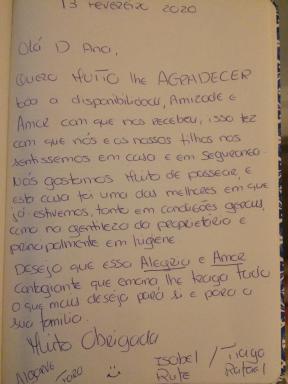 13 Fevereiro 2020
Olá D Ana,
Quero MUITO lhe AGRADECER
toda a disponibilidade, Amizade e
Amor com que nos recebeu, isso fez
com que nós e os nossos filhos nos
sentissemos em casa e em segurança.
Nós gostamos Muito de passear, e
esta casa foi uma das melhores em que
já estivemos, tanto em condições gerais,
como na gentileza do proprietário e
principalmente em higiene
Desejo que essa Alegria e Amor
contagiante que emana lhe traga tudo
o que mais deseja para si e para a
sua familia.
Muito Obrigada
Algarve
Faro
Isabel / Tiago
Rute / Rafael